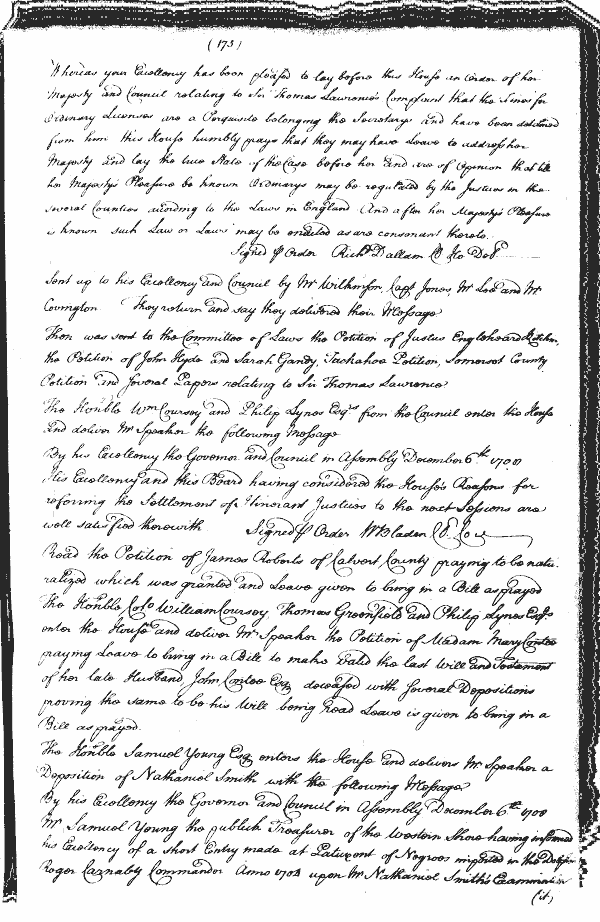 (173)
Whereas your Excellency has been pleased to lay before this House an Order of her
Majesty and Council relating to Sir Thomas Lawrence's Complaint that the Fines for
Ordinary Licenses are a Perquisite belonging the Secretary and have been detained
from him this House humbly prays that they may have Leave to address her
Majesty and lay the true State of the Case before her and are of Opinion that till
her Majestys Pleasure be known Ordinarys may be regulated by the Justices in the
several Counties according to the Laws in England And after her Majestys Pleasure
is known such Law or Laws may be enacted as are consonant thereto.
Signed p Order Richd Dallam Cl Ho Del
Sent up to his Excellency and Council by Mr Wilkinson, Capt Jones, Mr Lee and Mr
Covington They return and say they delivered their Message
Then was sent to the Committee of Laws the Petition of Justus Engleheard
the Petition of John Hyde and Sarah Gandy, Tuckahoe Petition, Somerset County
Petition and several Papers relating to Sir Thomas Lawrence
The Honble Wm Coursey and Philip Lynes Esqrs from the Council enter the House
and deliver Mr Speaker the following Message
By his Excellency the Governor and Council in Assembly December 6th 1708
His Excellency and this Board having considered the House's Reasons for
referring the Settlement of Itinerant Justices to the next Sessions are
well satisfied therewith Signed p Order W Bladen Cl Co
Read the Petition of James Roberts of Calvert County praying to be natu
ralized which was granted and Leave given to bring in a Bill as prayed
The Honble Colo William Coursey, Thomas Greenfield and Philip Lynes Esqrs
enter the House and deliver Mr Speaker the Petition of Madam Mary Contee
praying Leave to bring in a Bill to make valid the last Will and Testament
of her late Husband, John Contee Esq deceased with several Depositions
proving the same to be his Will being Read Leave is given to bring in a
Bill as prayed.
The Honble Samuel Young Esq enters the House and delivers Mr Speaker a
Deposition of Nathaniel Smith with the following Message
By his Excellency the Governor and Council in Assembly December 6th 1708
Mr Samuel Young the publick Treasurer of the Western Shore having informed
his Excellency of a short Entry made at Patuxent of Negroes imported in the
Roger Carnaby Commander Anno 1704 upon Mr Nathaniel Smith's Examination
(it)